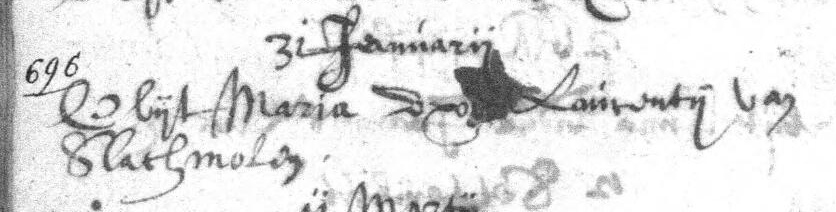 31 Januarij
696
Obijt Maria uxo Laurentij van
Slachmolen.
ij Martij